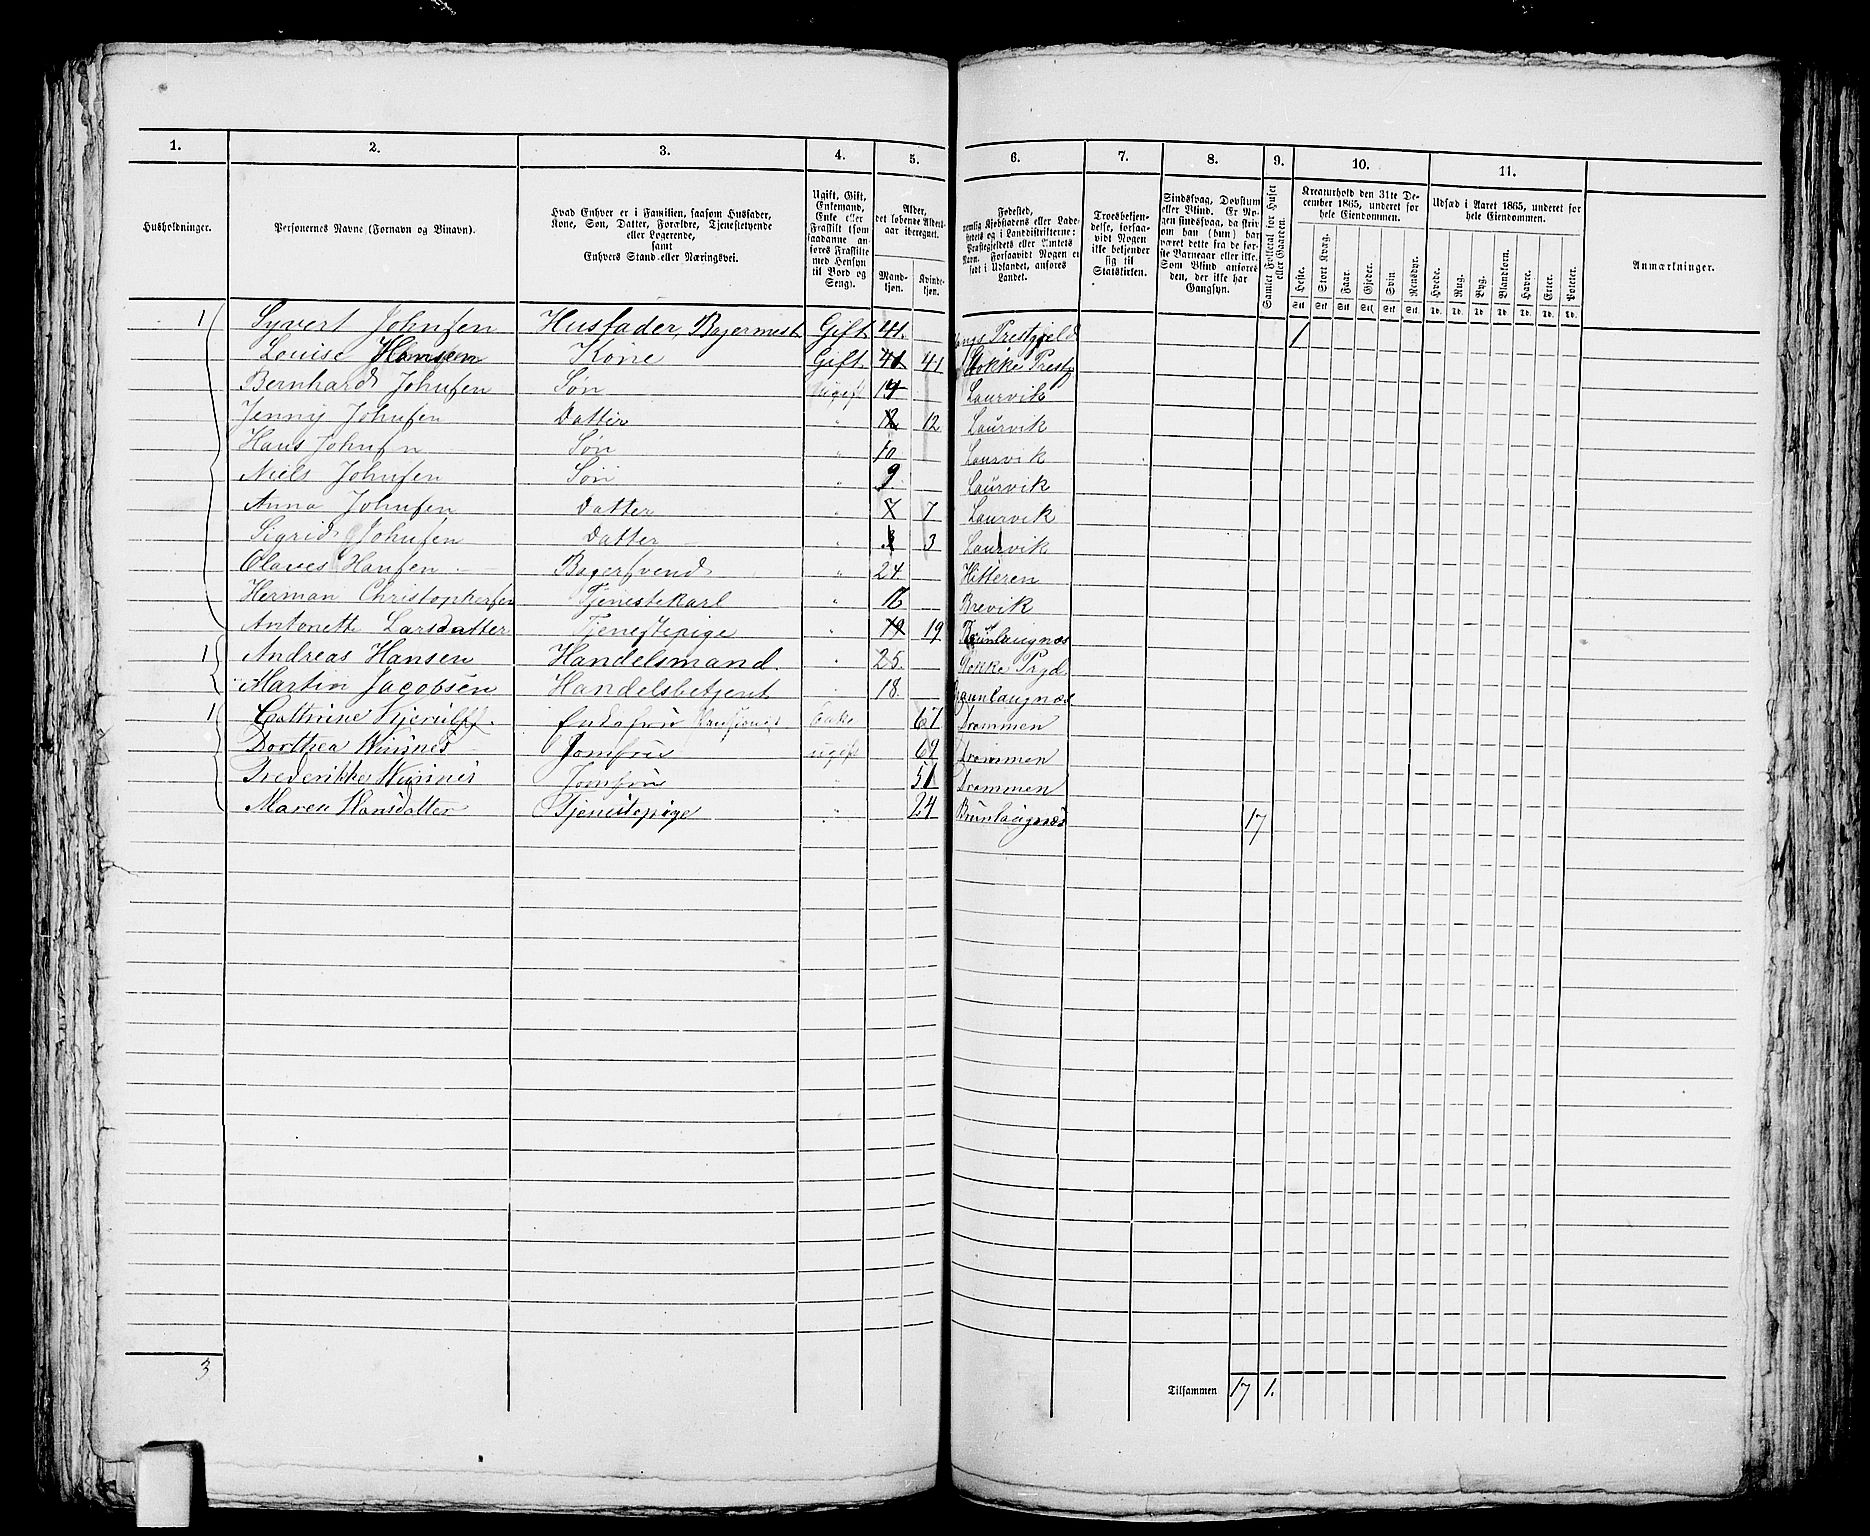 1. 2. 3. 4. 5. 6. 7. 8. 9. 10. 11.
Husholdninger.
Personernes Navne (Fornavn og Binavn).
Hvad Enhver er i Familien, saasom Husfader,
Kone, Søn, Datter, Forældre, Tjenestetyende
eller Logerende,
samt
Enhvers Stand eller Næringsvei.
Ugift, Gift,
Enkemand,
Enke eller
Fraskilt (som
saadanne an-
føres Fraskilte
med Hensyn
til Bord og
Seng).
Alder,
det løbende Alders-
aar iberegnet.
Mand-
kjøn.
Kvinde-
kjøn.
Fødested,
nemlig Kjøbstadens eller Lade-
stedets og i Landdistrikterne:
Præstegjeldets eller Amtets
Navn. Forsaavidt Nogen er
født i Udlandet, anføres
Landet.
Troesbekjen-
delse, forsaa-
vidt Nogen
ikke bekjender
sig til
Statskirken.
Sindssvag, Døvstum
eller Blind. Er No-
gen sindssvag, da skriv
om han (hun) har
været dette fra de før-
ste Barneaar eller ikke.
Som Blind anføres
den, der ikke har
Gangsyn.
Samlet Folketal for Huset
eller Gaarden.
Kreaturhold den 31te De-
cember 1865, underet for
hele Eiendommen.
Heste. Stort Kvæg. Faar. Gjeder. Svin. Rensdyr.
Stk. Stk. Stk. Stk. Stk. Stk.
Udsæd i Aaret 1865, underet for
hele Eiendommen.
Hvede. Rug. Byg. Blandkorn. Havre. Erter. Poteter.
Td. Td. Td. Td. Td. Td. Td.
Anmærkninger.
1 Syvert Johnsen Husfader, Bagermest. Gift 41. Prestgield 1
Louise Hansen Kone Gift 41 41 Stokke Prestg
Bernhard Johnsen Søn Ugift 14 Laurvik
Jenny Johnsen Datter " 12 12 Laurvik
Hans Johnsen Søn " 10 Laurvik
Niels Johnsen Søn " 9 Laurvik
Anna Johnsen Datter " 7 7 Laurvik
Sigrid Johnsen Datter " 3 3 Laurvik
Olaves Hansen Bagersvend " 24. Hitteren
Herman Christophersen Tjenestekarl " Brevik
Antonette Larsdatter Tjenestepige " 19 19 Brunlaugnæs
1 Andreas Hansen Handelsmand. " 25. Stokke Prgd
Martin Jacobsen Handelsbetjent " 18. Brunlaugnæs
1 Cathrine Kjerulff. Enke 67 Drammen
Dorthea Jomfru ugift 69 Drammen
Frederikke Jomfru " 51 Drammen
Maren Hansdatter Tjenestepige " 24 Brunlaugnæs 17
3 Tilsammen 17 1.